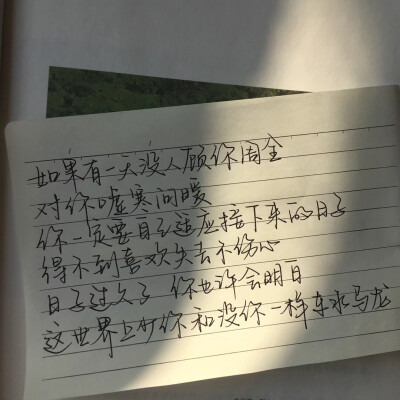 如果有一天没人顾你周全
对你嘘寒问暖
你一定要自己适应接下来的日子
得不到喜欢失去不伤心
日子过久了 你也许会明白
这世界上少你和没你一样车水马龙